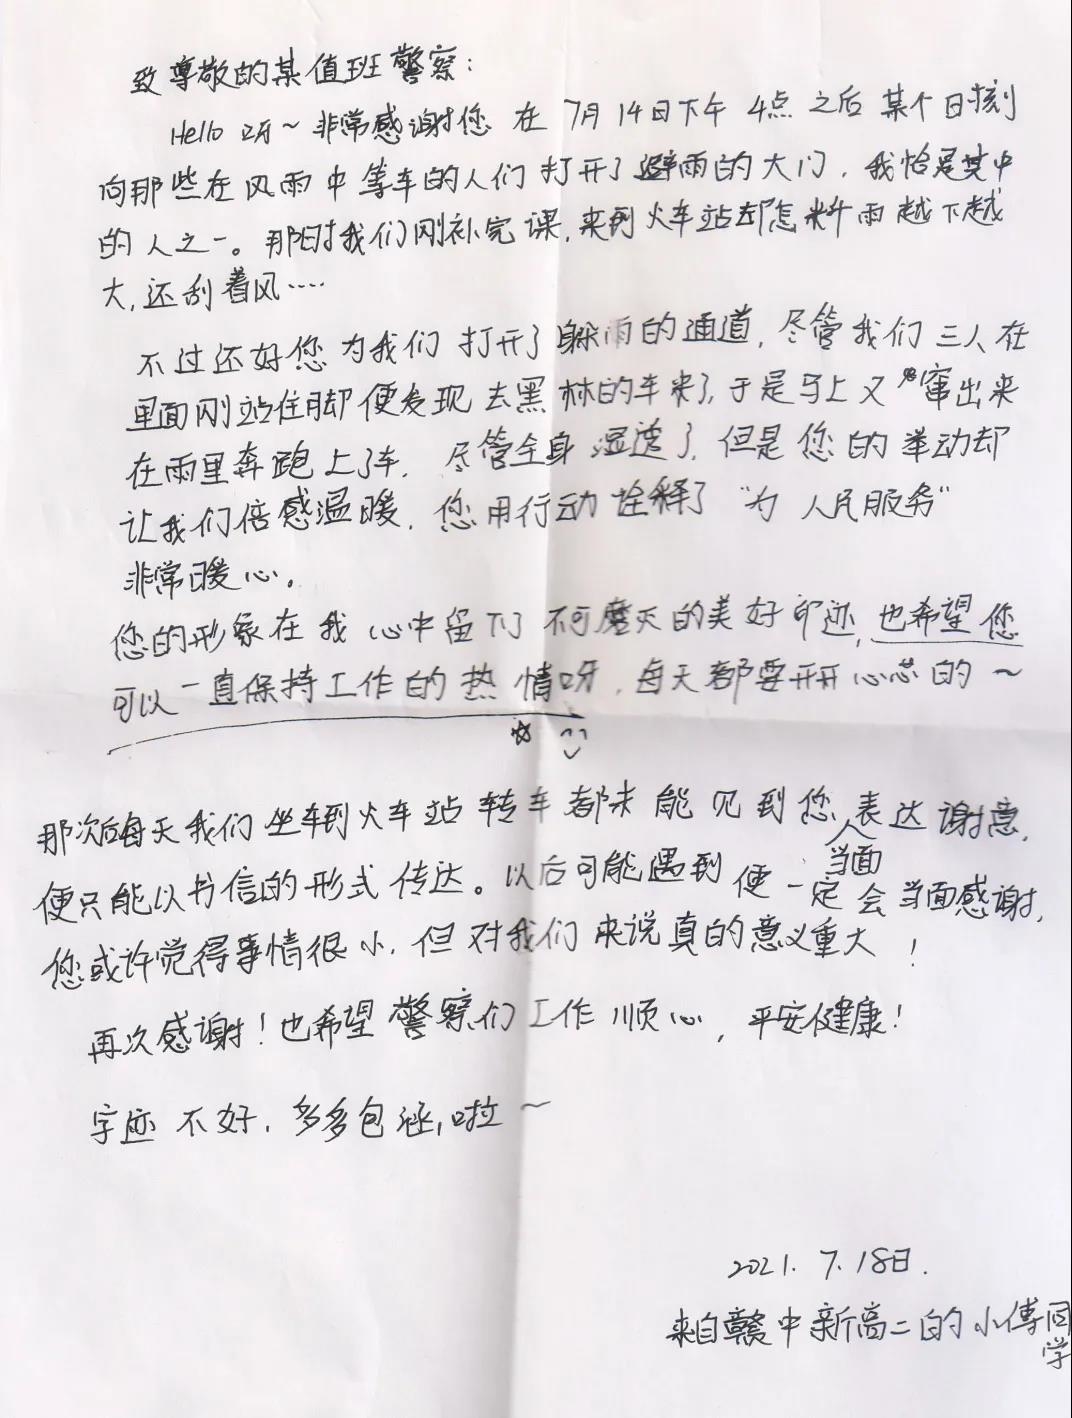 致尊敬的某值班警察：
Hello 呀～非常感谢您 在 7月14日下午 4点 之后 某个时刻
向那些在风雨中等车的人们 打开了避雨的大门，我恰是其中
的人之一。那时我们刚补完课，来到火车站却怎料雨越下越
大，还刮着风……
不过还好您为我们打开了躲雨的通道，尽管我们三人在
里面刚站住脚便发现去黑林的车来了，于是马上又窜出来
在雨里奔跑上了车，尽管全身湿透了，但是您的举动却
让我们倍感温暖，您用行动诠释了“为人民服务”
非常暖心。
您的形象在我心中留下了不可磨灭的美好印迹，也希望您
可以一直保持工作的热情呀，每天都要开开心心的～
那次后每天我们坐车到火车站转车都未能见到您表达谢意，
当面
便只能以书信的形式传达。以后可能遇到便一定会当面感谢，
您或许觉得事情很小，但对我们来说真的意义重大！
再次感谢！也希望警察们工作顺心，平安健康！
字迹不好，多多包涵啦～
2021.7.18日.
来自赣中新高二的小傅同
学